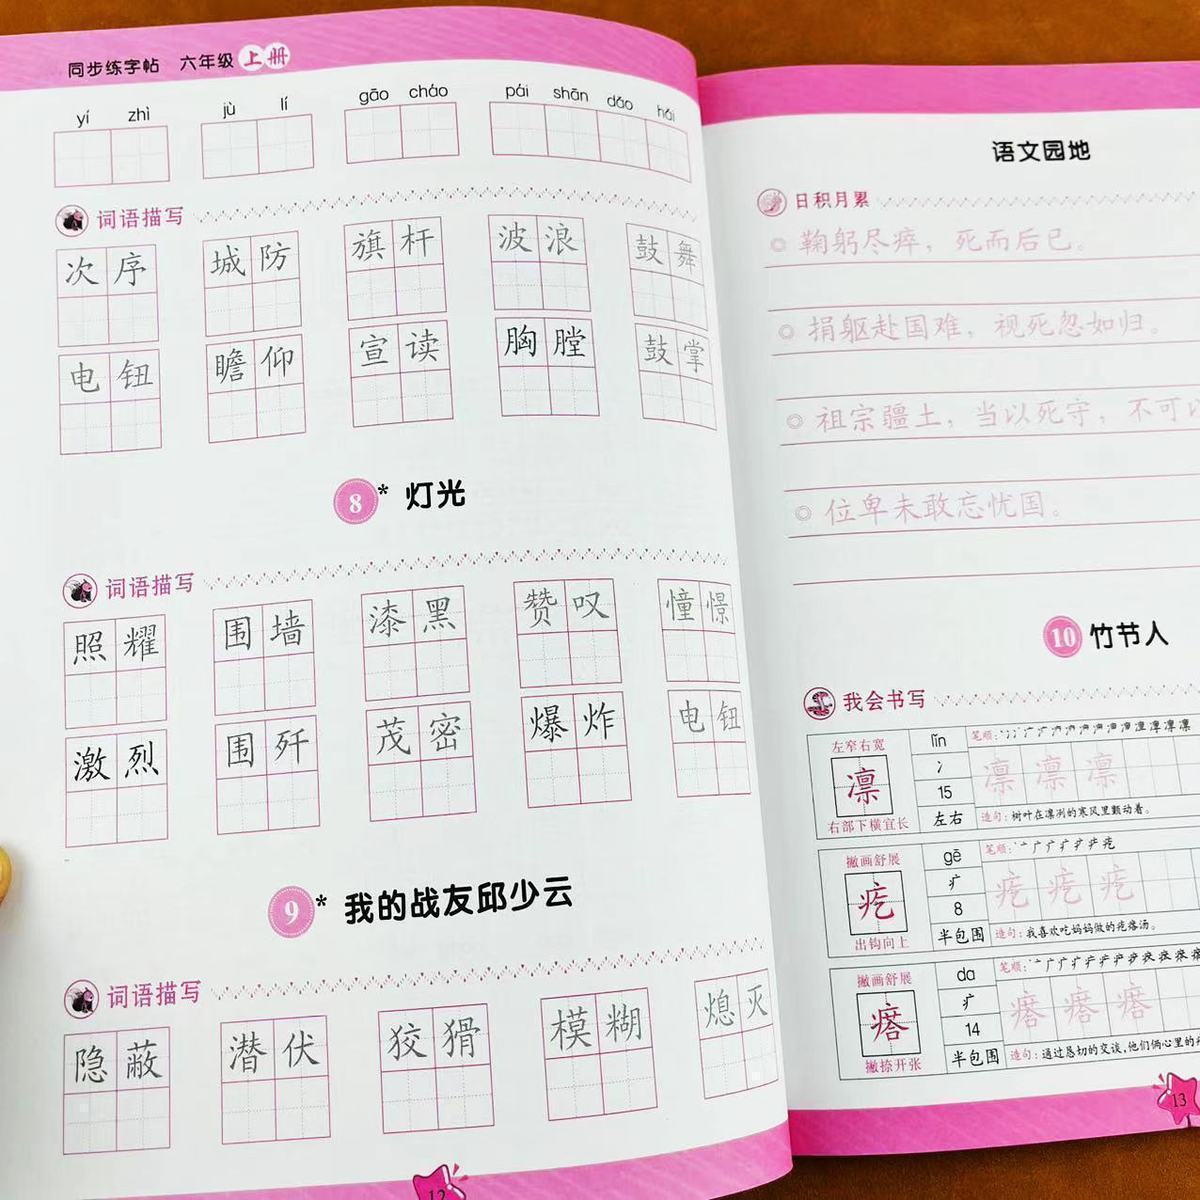 同步练字帖 六年级 上册
yí zhì jù lí gāo cháo pái shān dǎo hǎi
词语描写
次序 城防 旗杆 波浪 鼓舞
电钮 瞻仰 宣读 胸膛 鼓掌
8* 灯光
词语描写
照耀 围墙 漆黑 赞叹 憧憬
激烈 围歼 茂密 爆炸 电钮
9* 我的战友邱少云
词语描写
隐蔽 潜伏 狡猾 模糊 熄灭
12
语文园地
日积月累
◎ 鞠躬尽瘁，死而后已。
◎ 捐躯赴国难，视死忽如归。
◎ 祖宗疆土，当以死守，不可以
◎ 位卑未敢忘忧国。
10 竹节人
我会书写
左窄右宽 lǐn 笔顺：
凛 冫 凛 凛 凛
15
右部下横宜长 左右 造句：树叶在凛冽的寒风里颤动着。
撇画舒展 gē 笔顺：
疙 疒 疙 疙 疙
8
出钩向上 半包围 造句：我喜欢吃妈妈做的疙瘩汤。
撇画舒展 da 笔顺：
瘩 疒 瘩 瘩 瘩
14
撇捺开张 半包围 造句：通过恳切的交谈，他们俩心里的
13